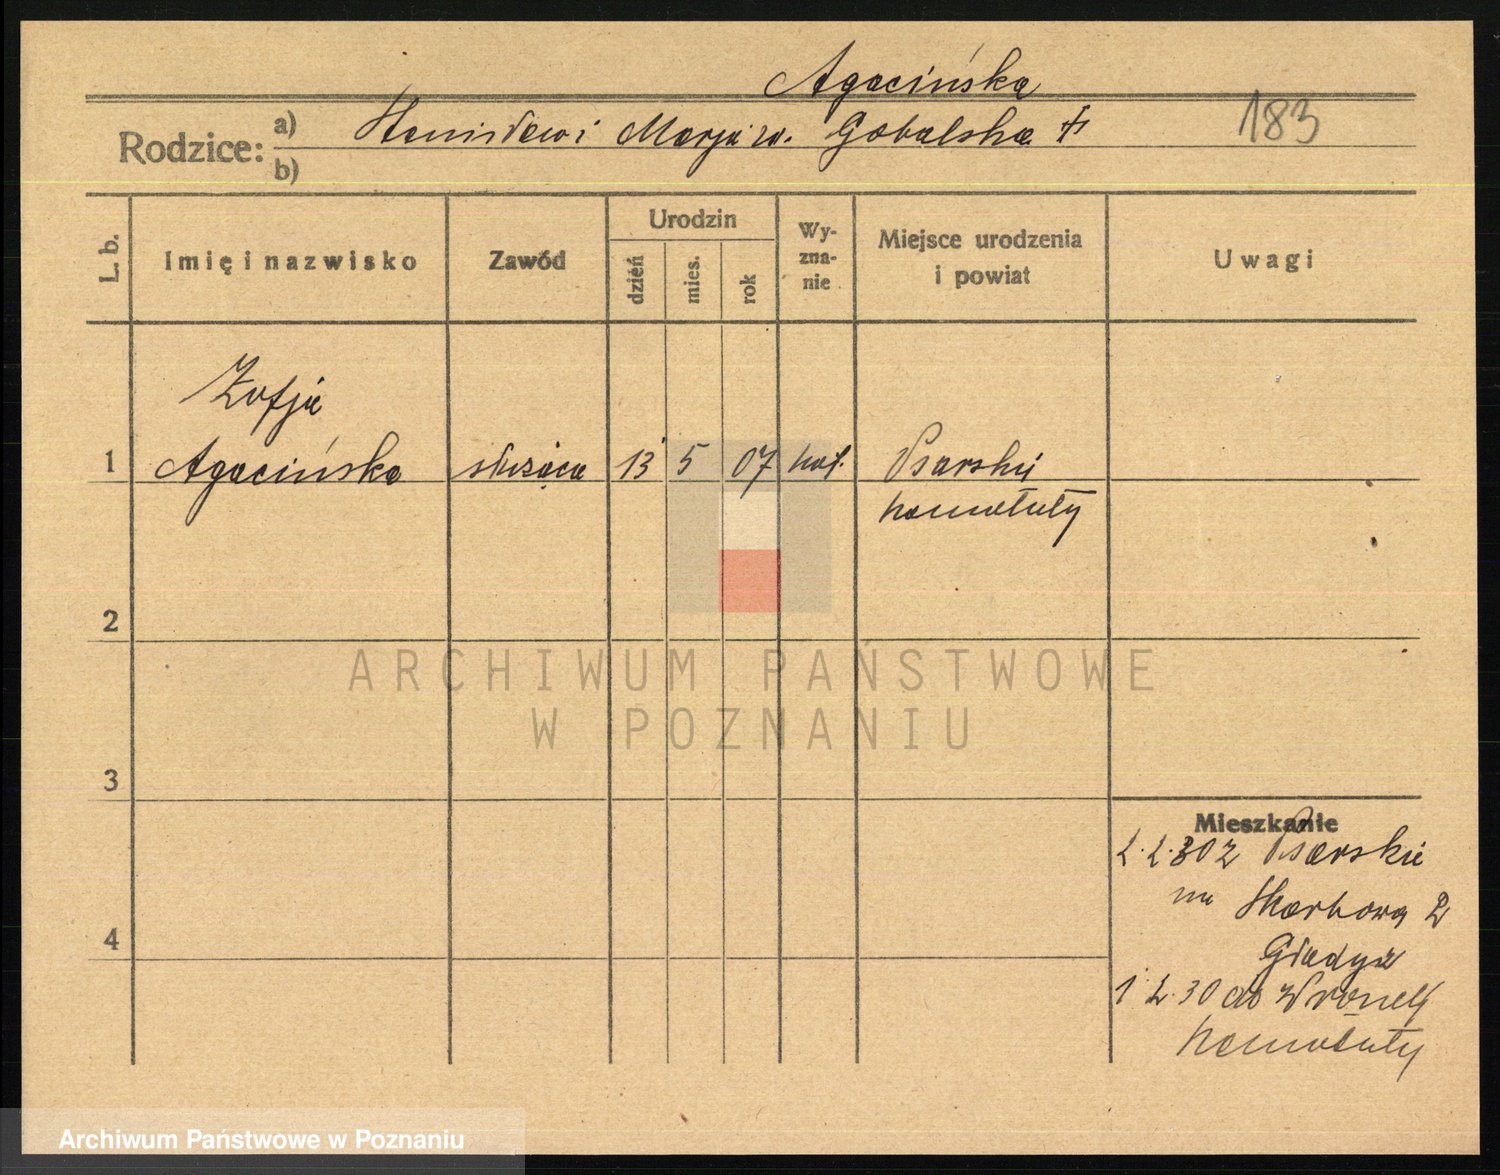 Agacińska
183
Rodzice:
a) Stanisław i Marja z. Gobalska +
b)
L. b.
Imię i nazwisko
Zawód
Urodzin
dzień
mies.
rok
Wy-
zna-
nie
Miejsce urodzenia
i powiat
Uwagi
Zofja
1 Agacińska służąca 13 5 07 kat. Psarskie
2
3
4
Mieszkanie
Psarskie
na Skarbowa 2
1. 2. 30 do Wronek
ARCHIWUM PAŃSTWOWE
W POZNANIU
Archiwum Państwowe w Poznaniu